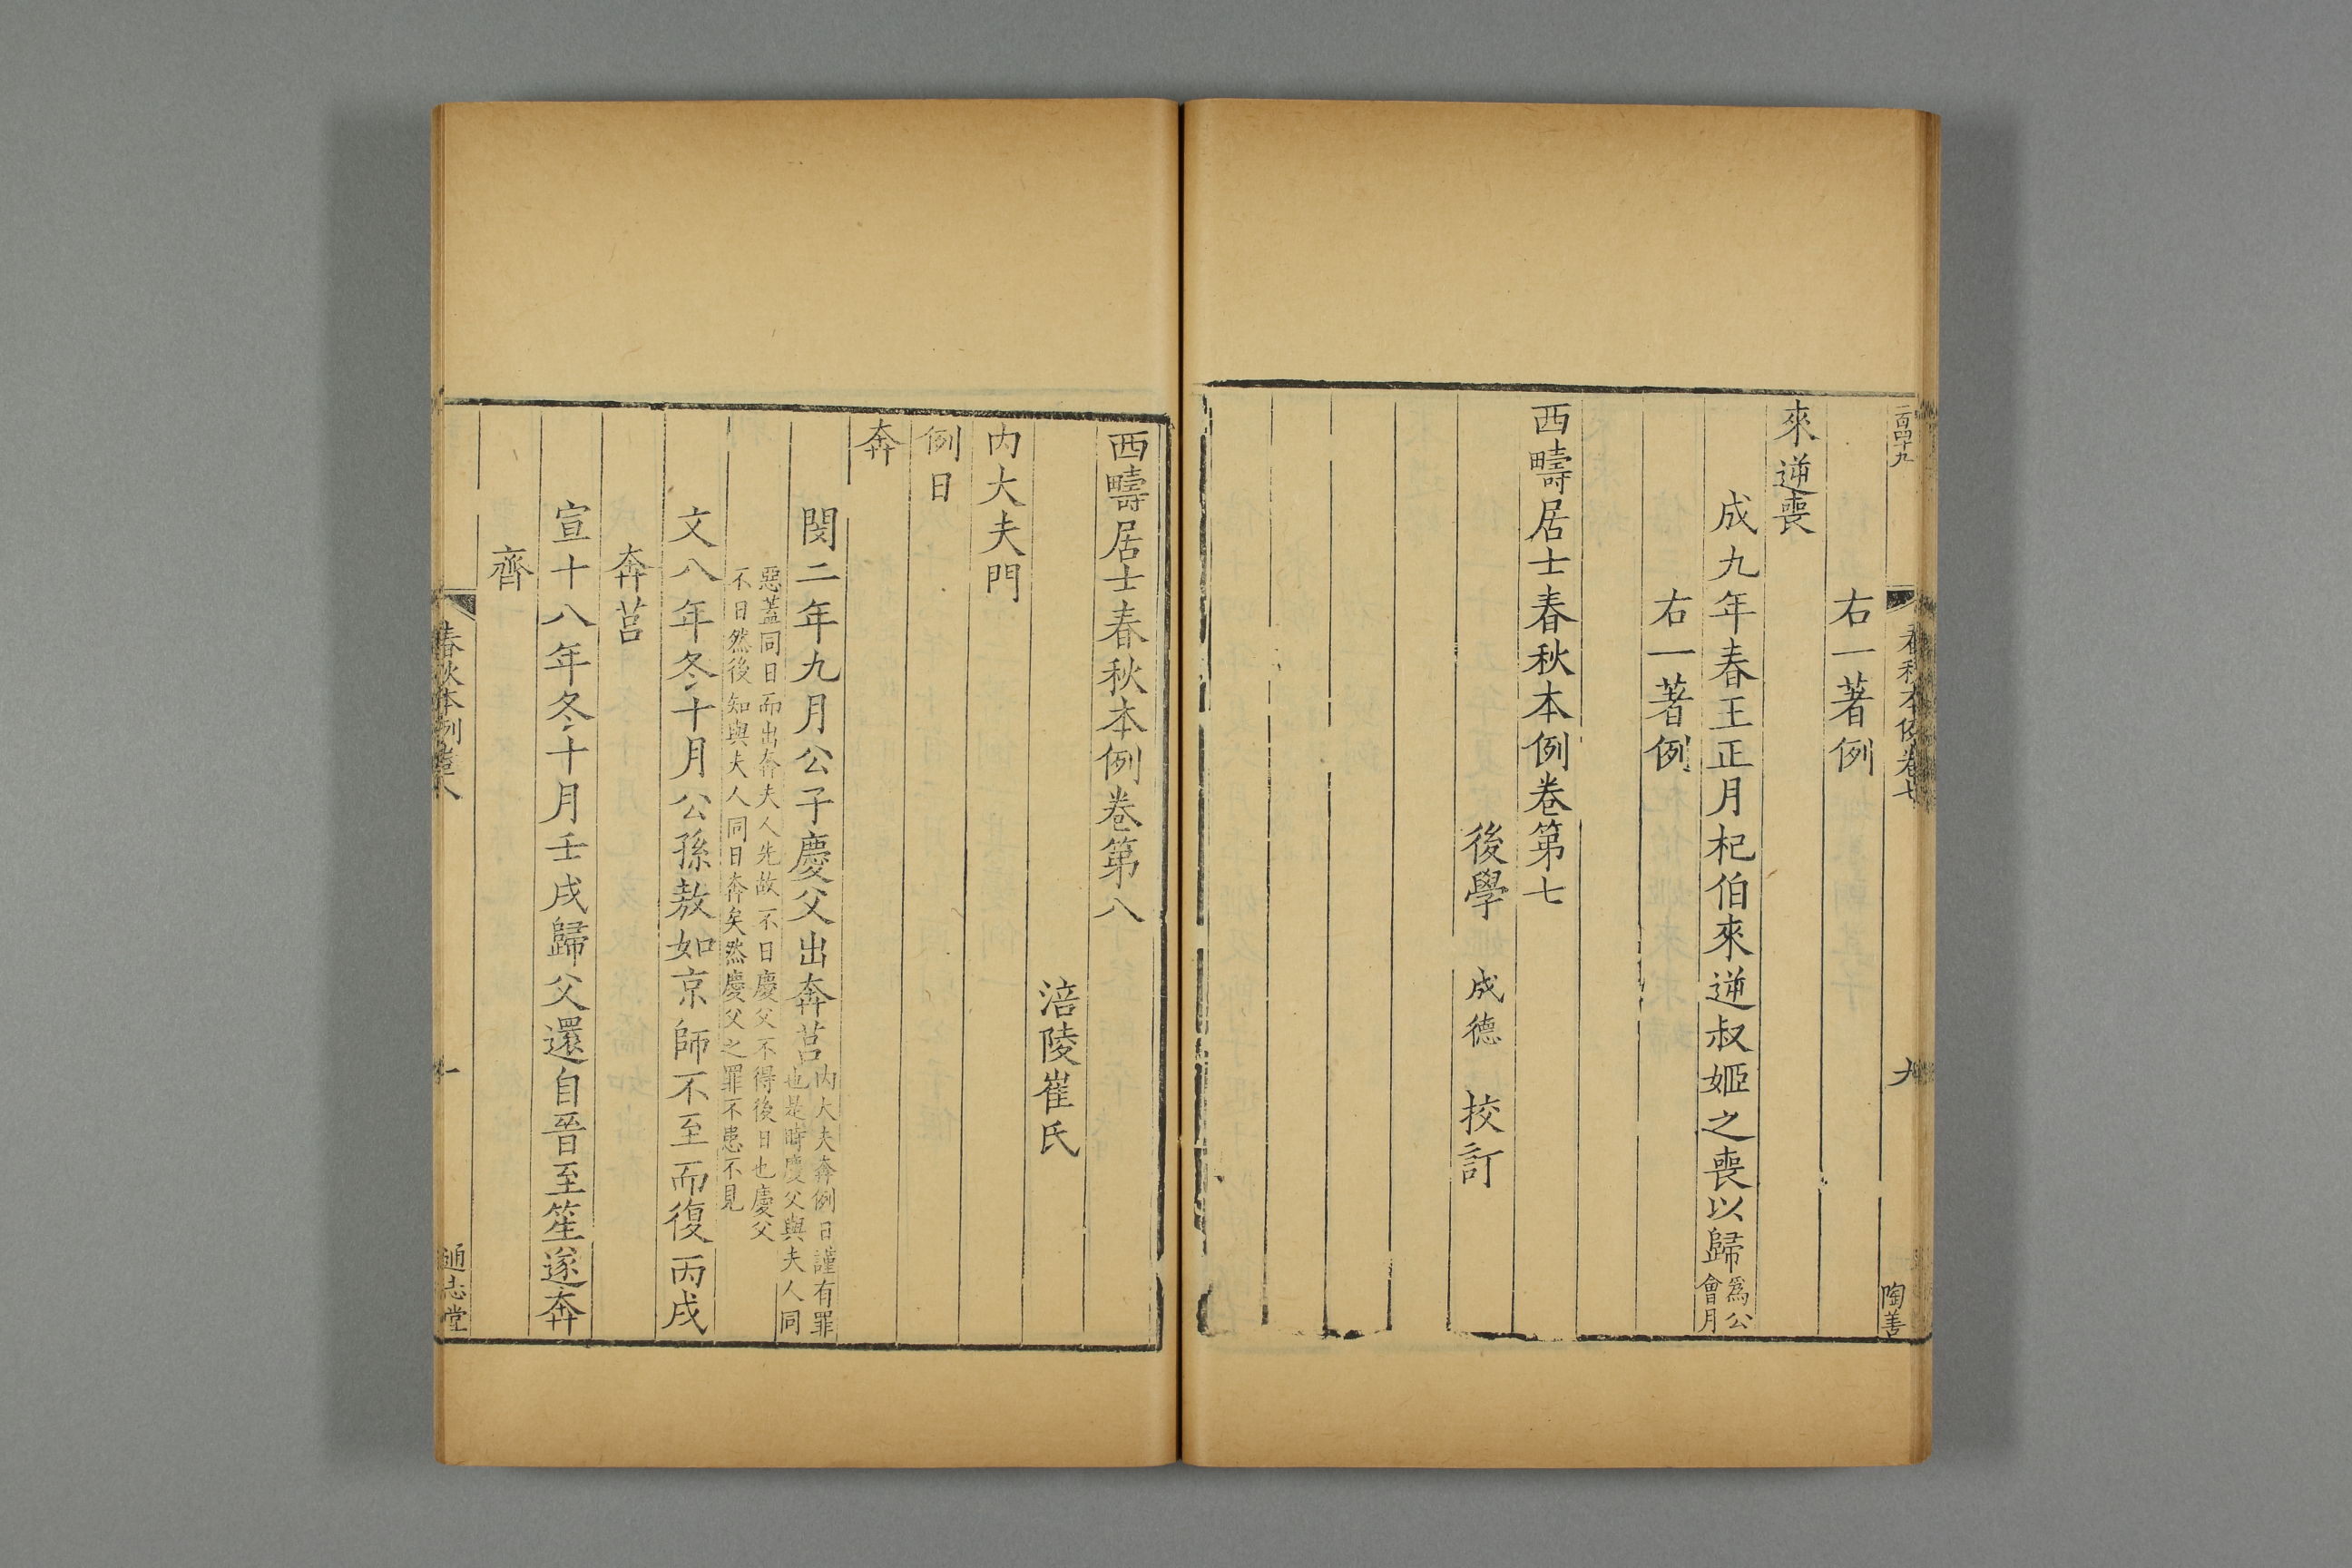 一百四十九
春秋本例卷七
九
陶善
右一著例
來逆喪
成九年春王正月杞伯來逆叔姬之喪以歸為公
會月
右一著例
西疇居士春秋本例卷第七
後學 成德 校訂
西疇居士春秋本例卷第八
涪陵崔氏
內大夫門
例日
奔
閔二年九月公子慶父出奔莒內大夫奔例日謹有罪
也是時慶父與夫人同
惡蓋同日而出奔夫人先故不日慶父不得後日也慶父
不日然後知與夫人同日奔矣然慶父之罪不患不見
文八年冬十月公孫敖如京師不至而復丙戌
奔莒
宣十八年冬十月壬戌歸父還自晉至笙遂奔
齊
春秋本例卷八
一
通志堂